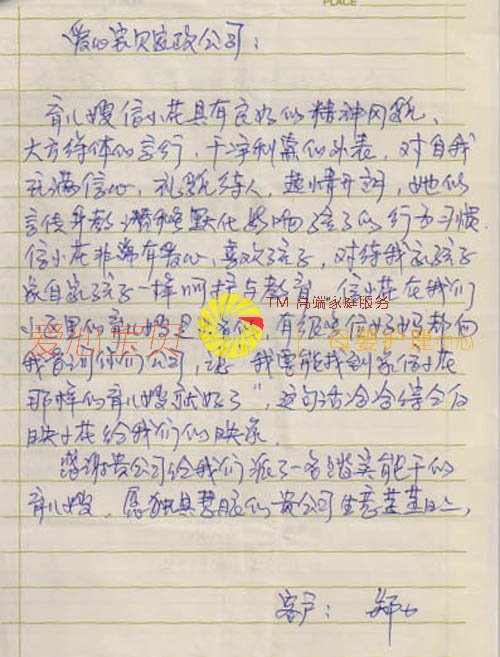 PLACE
爱心宝贝家政公司：
育儿嫂信小花具有良好的精神风貌、
大方得体的言行，干净利落的外表，对自我
充满信心，礼貌待人，热情开朗，她的
言传身教潜移默化影响孩子的行为习惯。
信小花非常有爱心，喜欢孩子，对待我家孩子
象自家孩子一样呵护与教育。信小花在我们
TM 高端家庭服务
小区里的育儿嫂是
有很
都向
爱心宝贝
母婴护理中心
我咨询你们公司，说“我要能找到象信小花
那样的育儿嫂就好了”，这句话
综合反
映小花给我们的印象。
感谢贵公司给我们派了一名踏实能干的
育儿嫂。愿独具慧眼的贵公司生意蒸蒸日上，
客户：